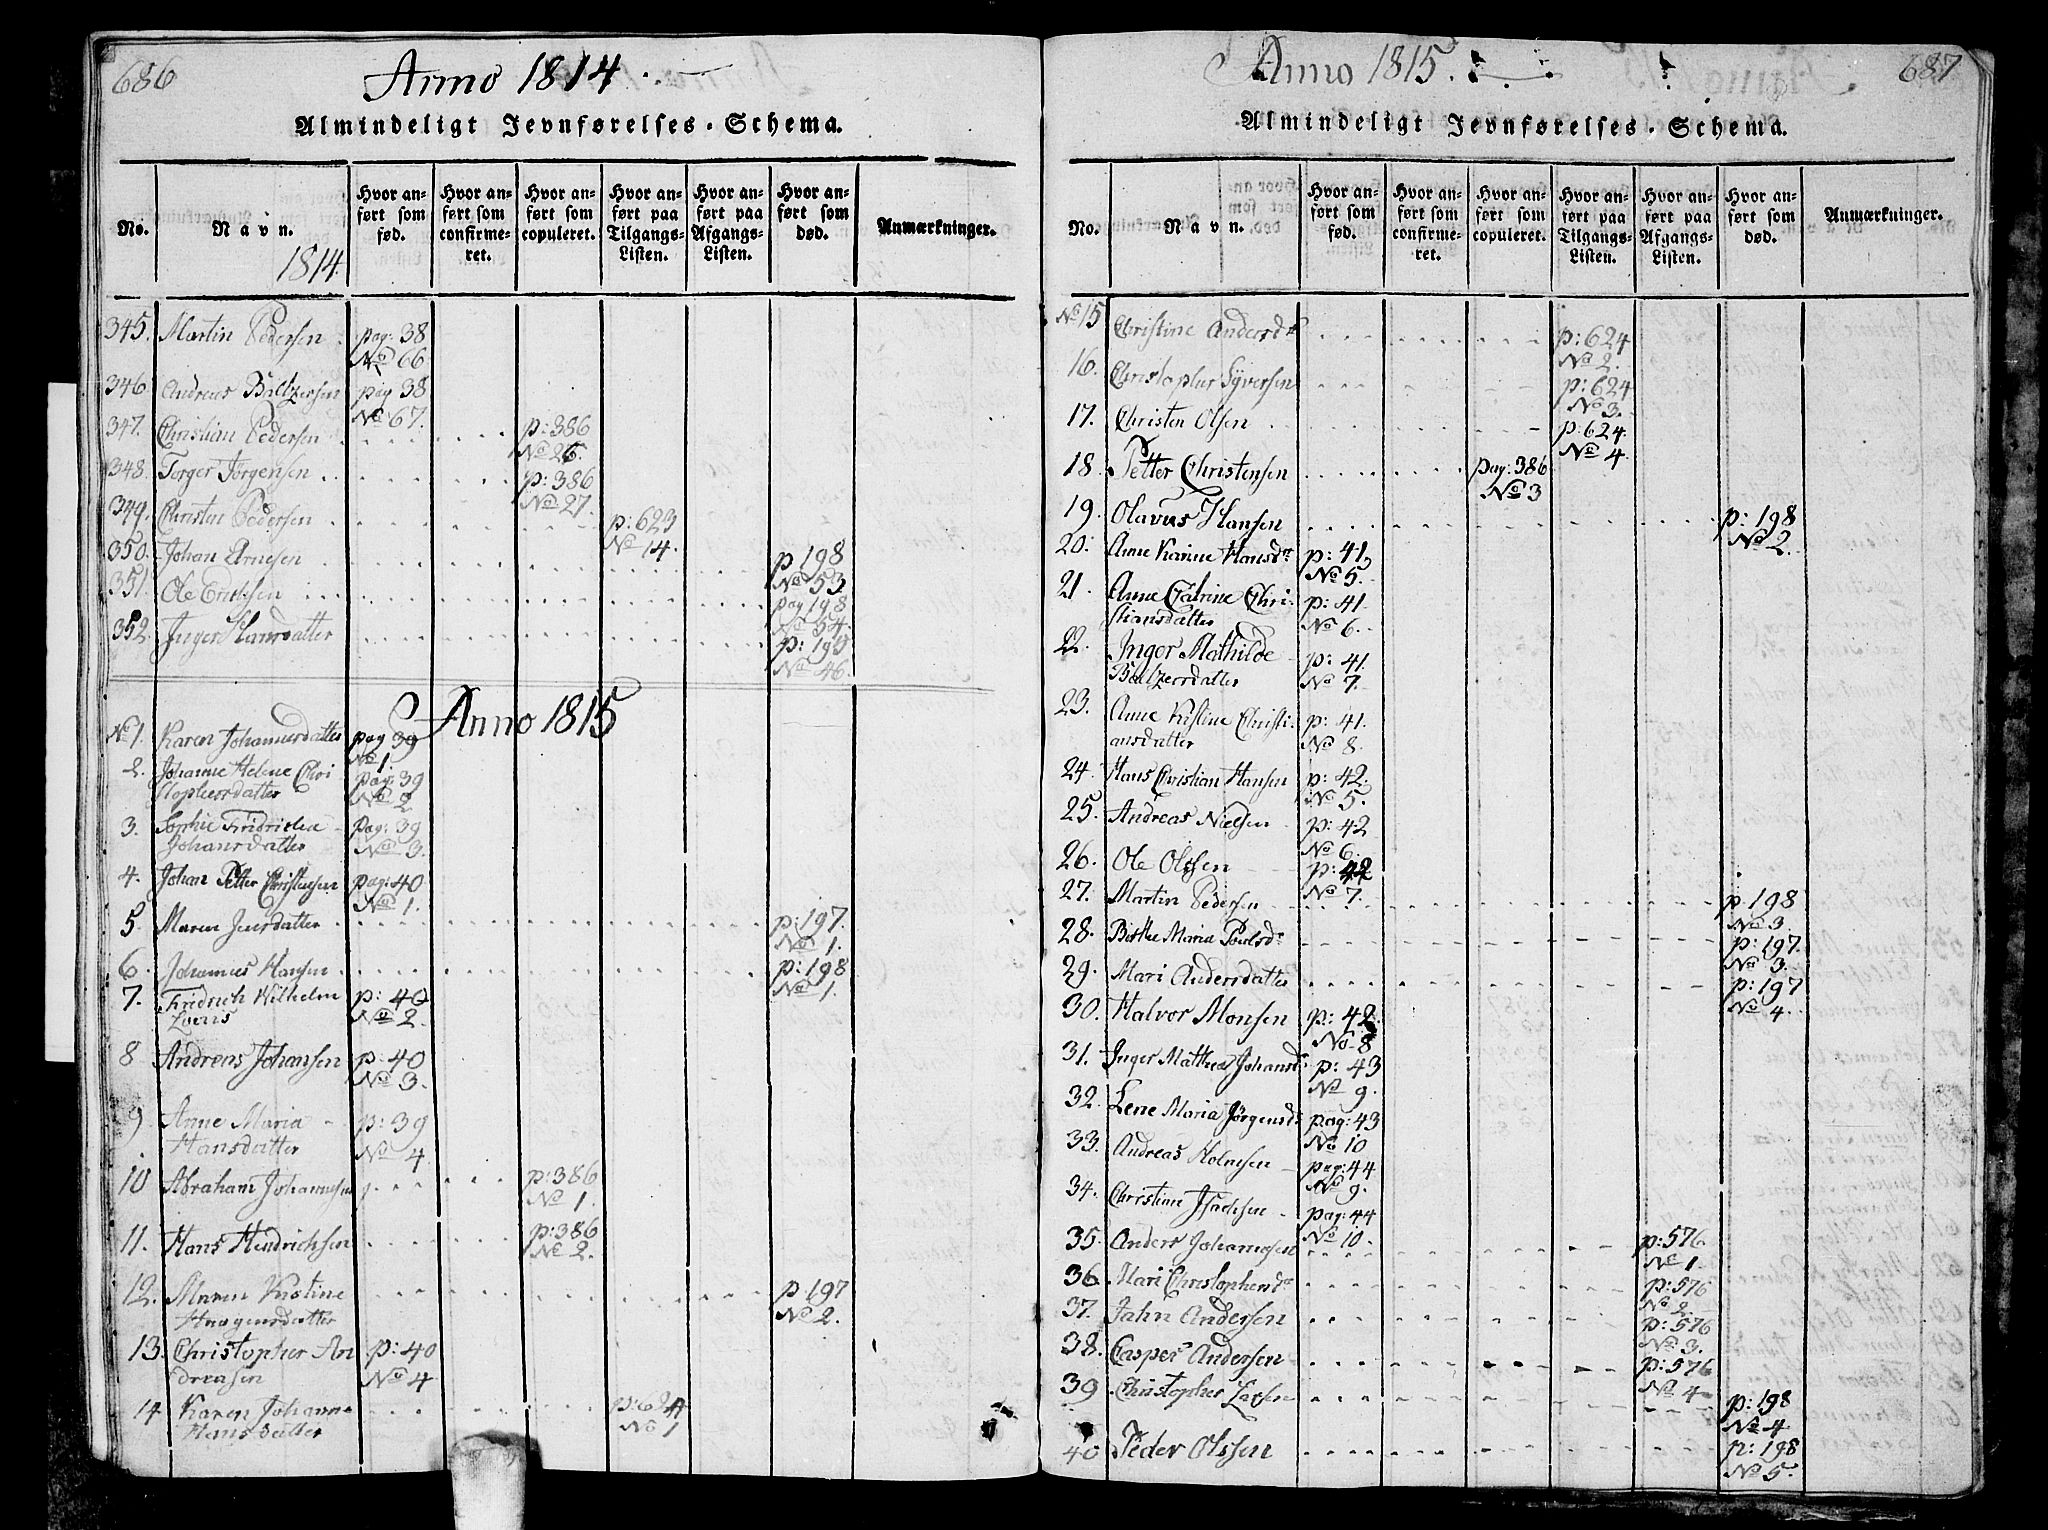 686
Anno 1814.
Almindeligt Jevnførelses-Schema.
No.
Navn.
1814.
Hvor anført som fød.
Hvor anført som confirmeret.
Hvor anført som copuleret.
Hvor anført paa Tilgangs-Listen.
Hvor anført paa Afgangs-Listen.
Hvor anført som død.
Anmærkninger.
345. Martin Pedersen pag: 38
No 66
346 Andreas Baltzersen pag 38
No 67.
347. Christian Pedersen p: 386
No 26.
348. Torger Jørgensen p: 386
No 27.
349. Christen Pedersen p: 623
No 14.
350. Johan Arnesen p 198
No 53
351. Ole Ericksen pag 198
No 54.
352. Inger Hansdatter p: 195
No 46.
Anno 1815
No 1. Karen Johannesdatter pag 39
No 1.
2. Johanne Helene Chri
stophersdatter pag: 39
No 2
3. Sophie Fridricka
Johansdatter pag: 39
No 3.
4. Johan Petter Christensen pag: 40
No 1.
5. Maren Jensdatter p: 197.
No 1.
6. Johannes Hansen p: 198
No 1.
7. Fridrich Wilhelm p: 40
No 2.
8 Andreas Johansen p: 40
No 3.
9 Anne Maria
Hansdatter p: 39
No 4
10 Abraham Johannesen p: 386
No 1.
11. Hans Hendrichsen p: 386
No 2.
12. Maren Kistine
Haagensdatter p 197
No 2.
13. Christopher An
dreasen p: 40
No 4
14 Karen Johanne
Hansdatter p: 624
No 1
687
Anno 1815.
Almindeligt Jevnførelses-Schema.
No.
Navn.
Hvor anført som fød.
Hvor anført som confirmeret.
Hvor anført som copuleret.
Hvor anført paa Tilgangs-Listen.
Hvor anført paa Afgangs-Listen.
Hvor anført som død.
Anmærkninger.
No 15 Christine Andersdtr p: 624
No 2.
16. Christopher Syversen p: 624
No 3.
17. Christen Olsen p: 624.
No 4.
18. Petter Christensen pag: 386
No 3
19. Olavus Hansen p: 198
No 2.
20. Anne Karine Hansdtr p: 41
No 5.
21. Anne Catrine Chri-
stiansdatter p: 41
No 6.
22. Inger Mathilde
Baltzersdatter p: 41
No 7.
23. Anne Kistine Christi-
ansdatter p: 41
No 8.
24. Hans Christian Hansen p: 42.
No 5.
25. Andreas Nielsen p: 42
No 6.
26. Ole Olssen p: 42
No 7.
27. Martin Pedersen p 198
No 3.
28. Birthe Maria Poulsd. p: 197.
No 3.
29. Mari Andersdatter p: 197
No 4.
30. Halvor Monsen p: 42.
No 8
31. Inger Mathea Johansd. p: 43
No 9.
32. Lene Maria Jörgensd. pag: 43
No 10
33. Andreas Holmsen pag: 44
No 9.
34. Christine Isachsen pag: 44
No 10.
35. Anders Johannesen p: 576.
No 1.
36. Mari Christophersd. p: 576
No 2.
37. Jahn Andersen p: 576
No 3.
38. Casper Andersen p: 576
No 4
39. Christopher Larsen p: 198
No 4
40 Peder Olssen p: 198
No 5.